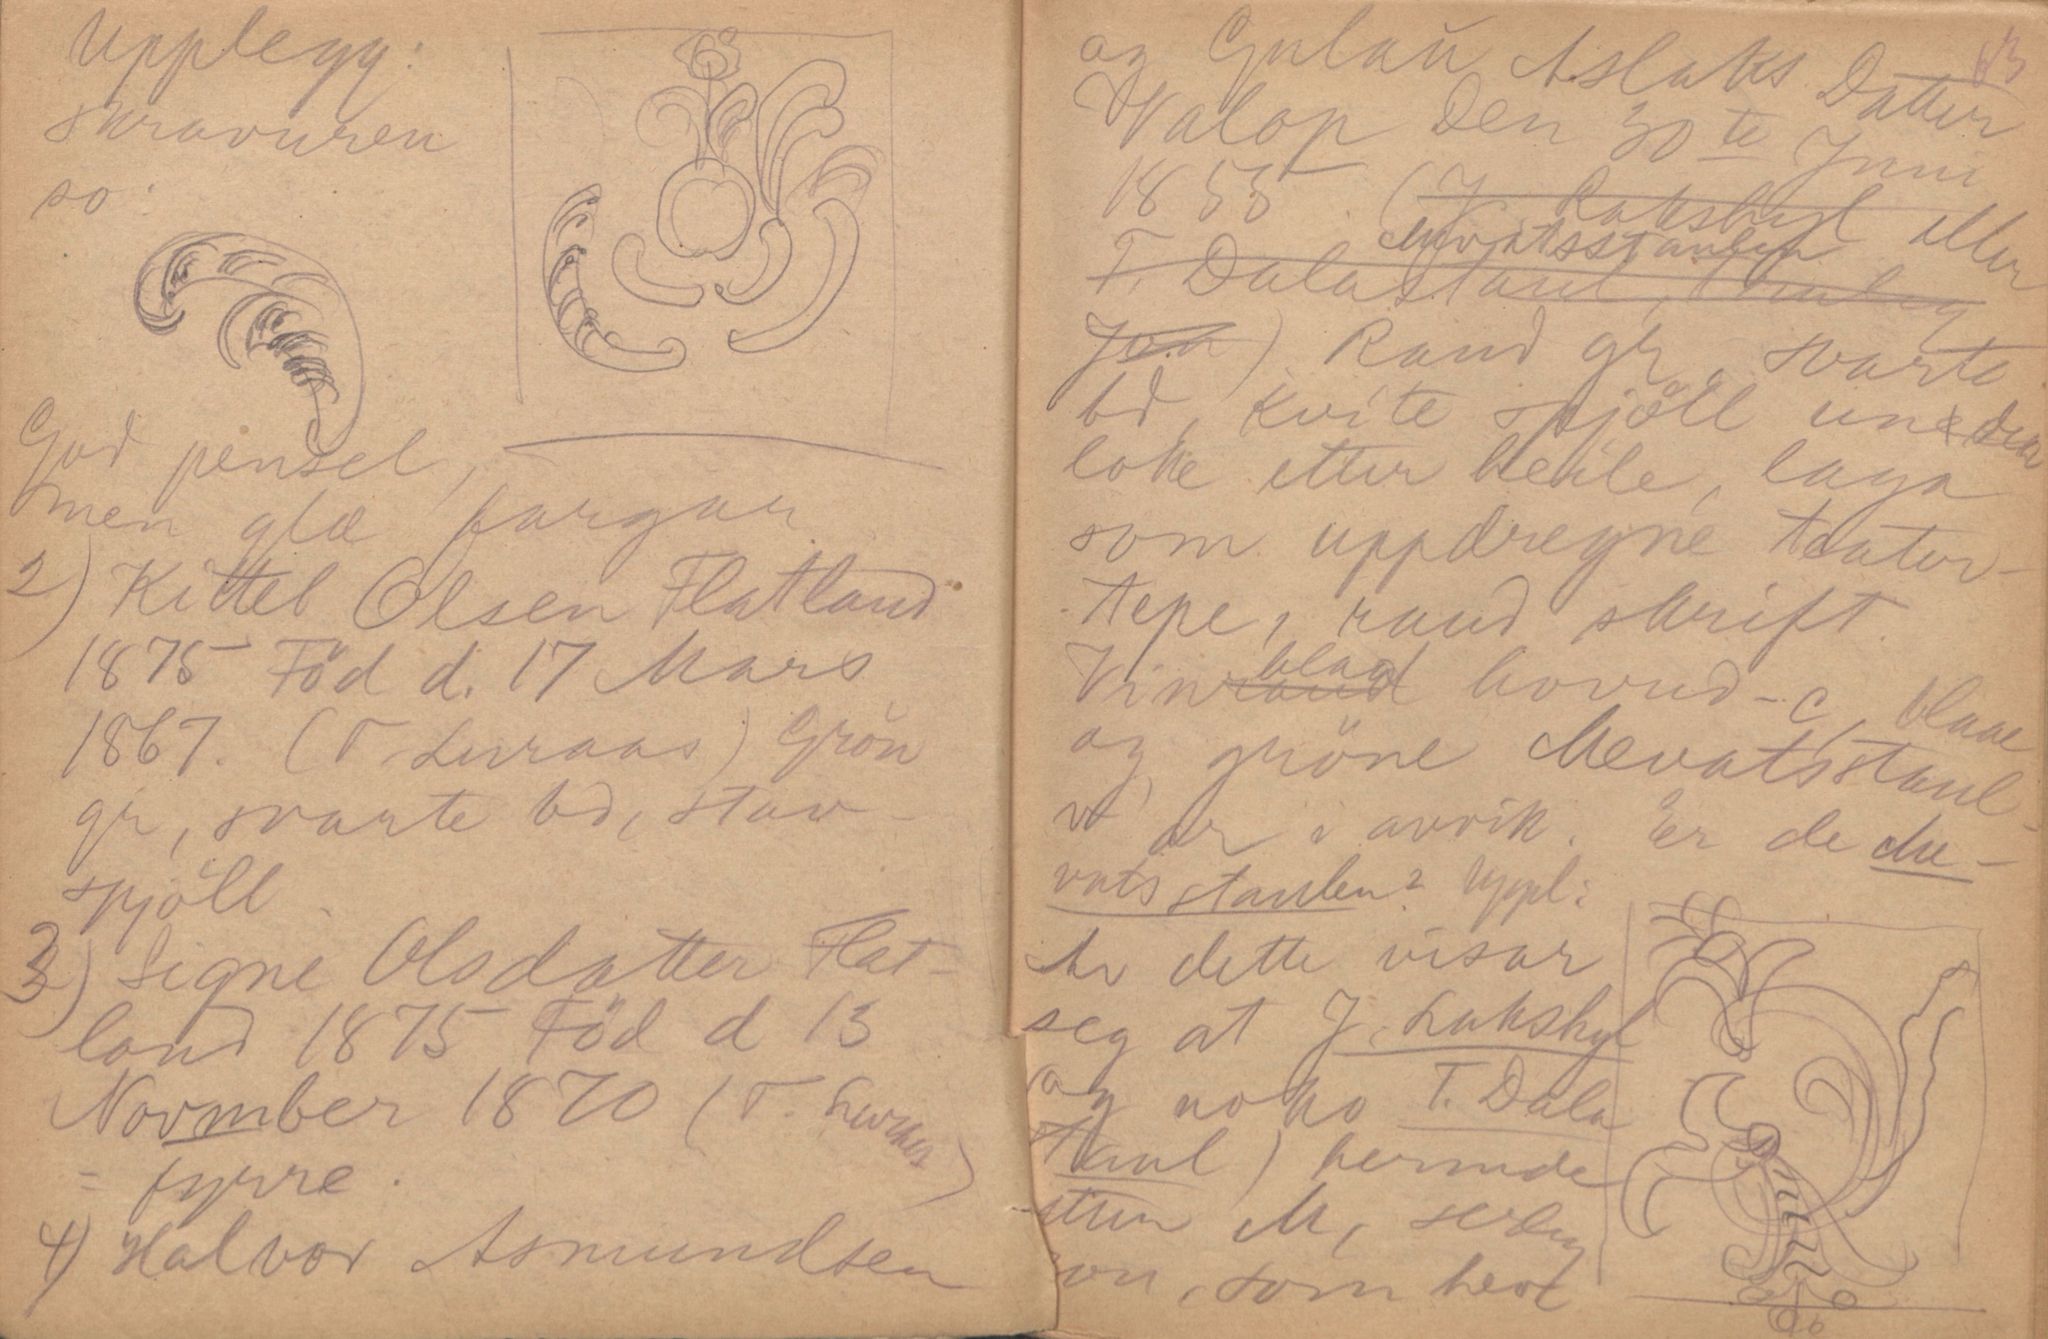 Upplegg:
skravuren
so:
God pensel,
men glæ fargar
2) Kittel Olsen Flatland
1875 Föd d. 17 Mars
1867. (T. Luraas) Grön
gr, svarte bd, stav-
spjöll
3) Signe Olsdatter Flat-
land 1875 Föd d 13
Novmber 1870 (T. Luraas)
= fyrre.
4) Halvor Asmundsen
63
og Gulau Aslaks Datter
Valop Den 30te Juni
1855 (J Lukshyl eller
Mevatsstaulen
T. Dalastaul,
Joa) Raud gr, svarte
bd, kvite spjöll unde
loke etter heile, laga
som uppdregne teater-
tepe, raud skrift.
blaa
Vinraud hovud-c, blaae
og gröne Mevatsstaul-
er i avvik. Er de Me-
vatsstaulen? Uppl:
Av dette visar
seg at J. Lukshyl
og noko T. Dala
staul) hermde
etter M,
som